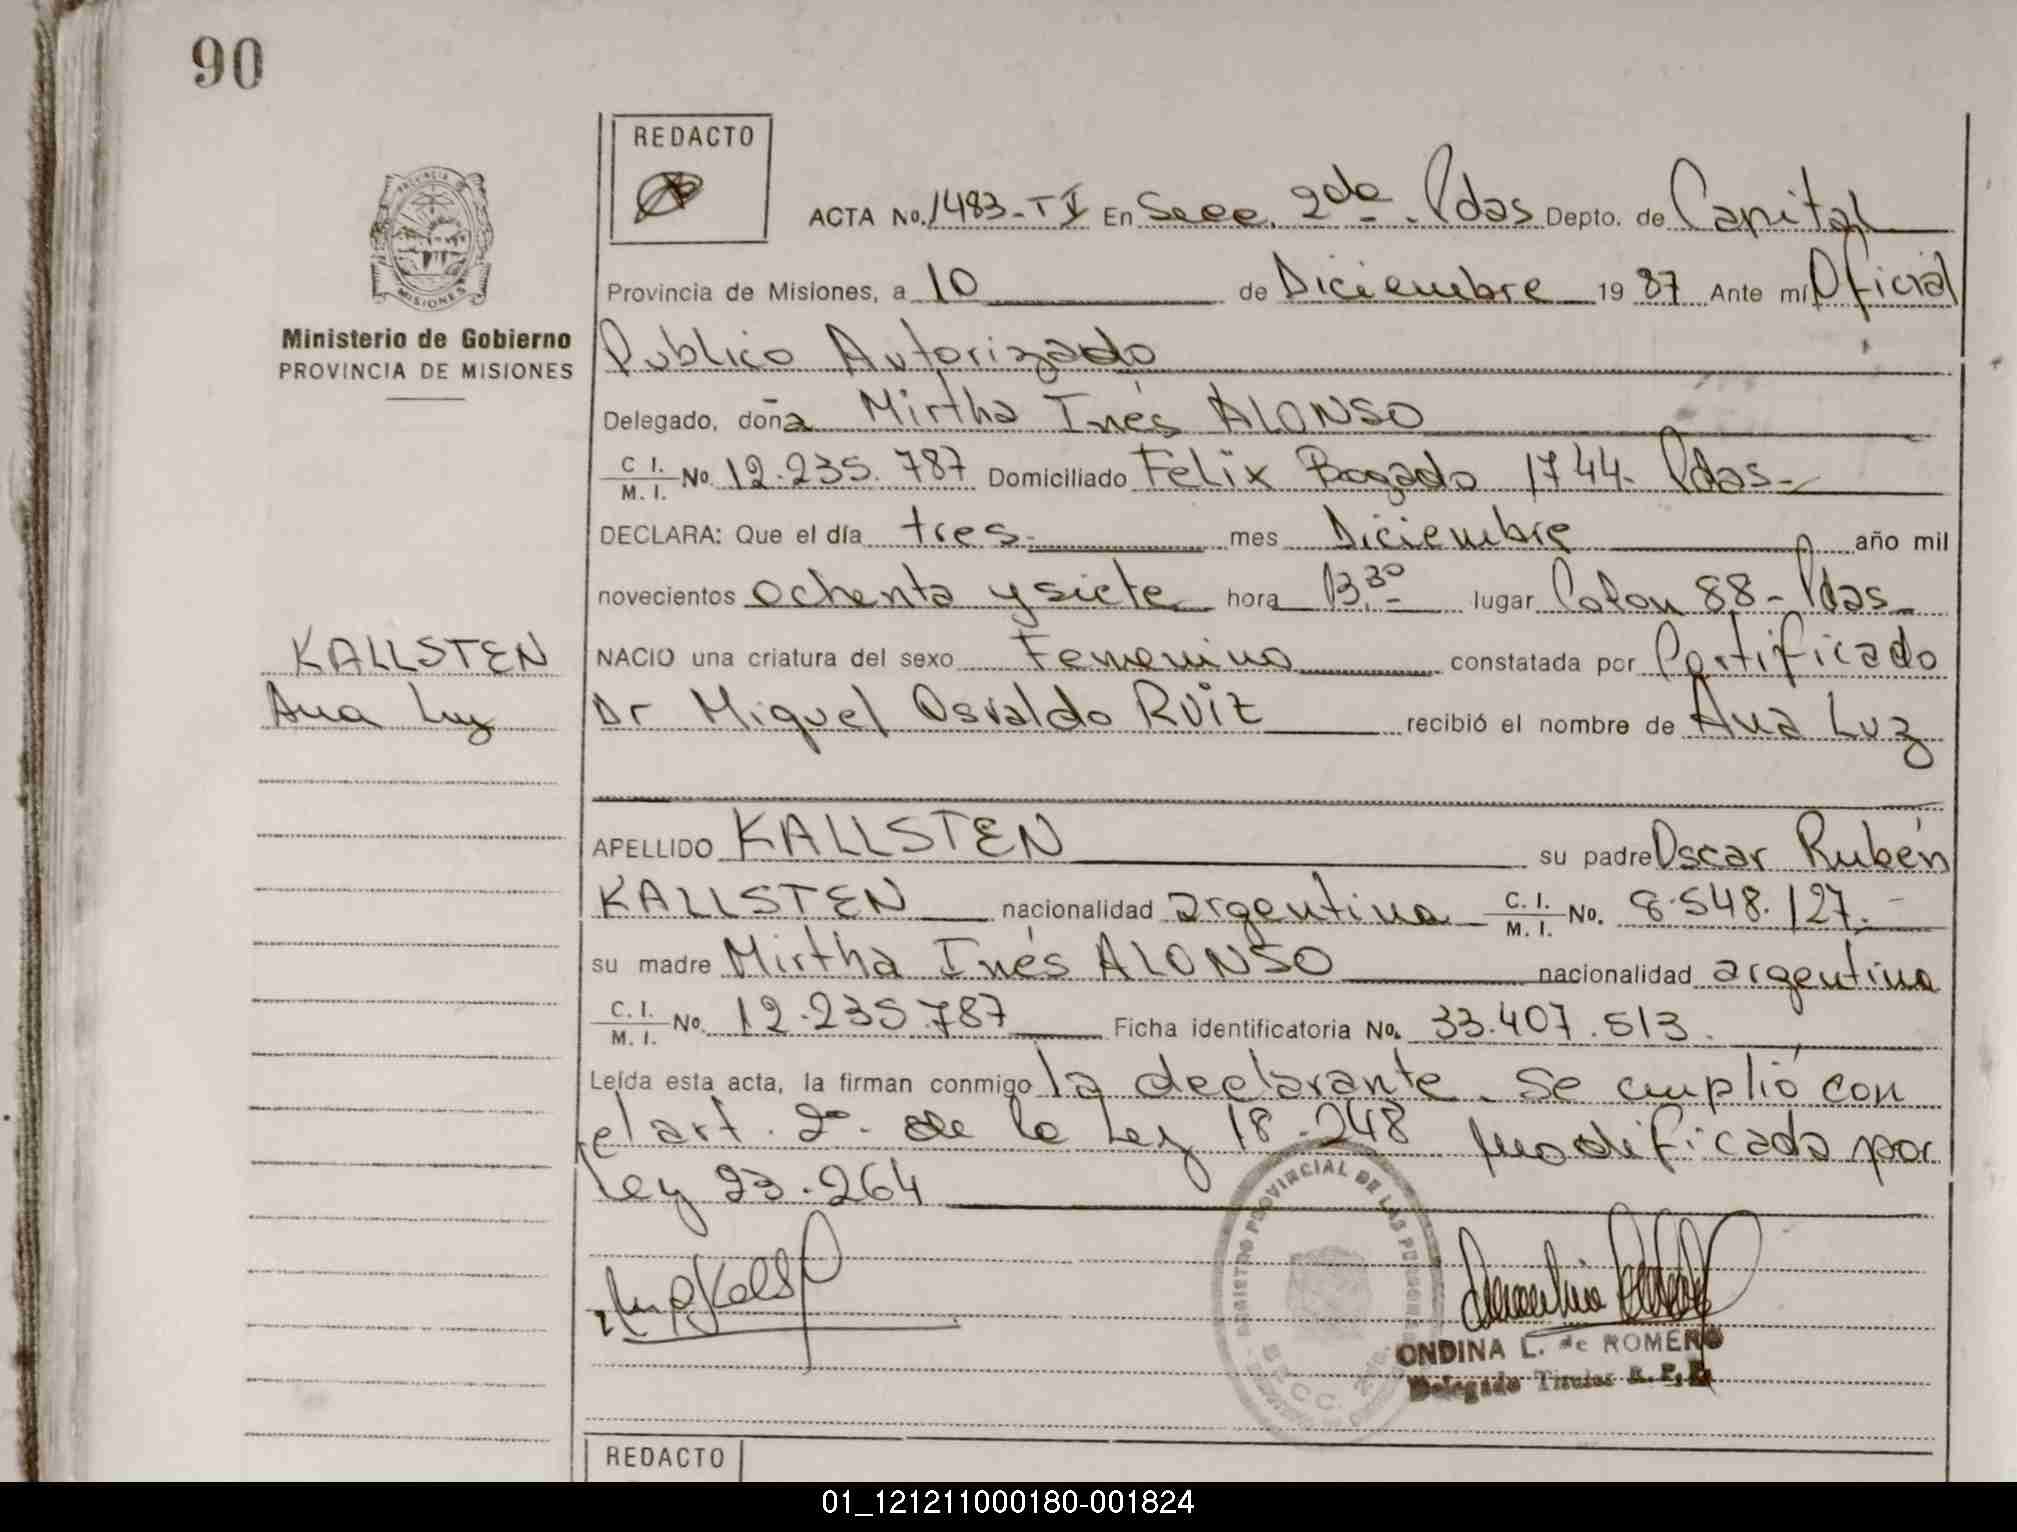 90
REDACTO
ACTA No. 1483-TI En Secc. 2da. Pdas Depto. de Capital
PROVINCIA DE
MISIONES
Provincia de Misiones, a 10 de Diciembre 19 87 Ante mí Oficial
Ministerio de Gobierno
PROVINCIA DE MISIONES
Publico Autorizado
Delegado, doña Mirtha Inés ALONSO
C I.
M. I. No 12.235.787 Domiciliado Felix Bogado 1744. Pdas-
DECLARA: Que el día tres mes Diciembre año mil
novecientos ochenta y siete hora 13,30 lugar Colon 88- Pdas
KALLSTEN
NACIO una criatura del sexo Femenino constatada por Certificado
Ana Luz
Dr Miguel Osvaldo RUIZ recibió el nombre de Ana Luz
APELLIDO KALLSTEN su padre Oscar Rubén
KALLSTEN nacionalidad argentina C. I.
M. I. No. 8.548.127.-
su madre Mirtha Inés ALONSO nacionalidad argentina
C. I.
M. I. No. 12.235.787 Ficha identificatoria No. 33.407.513.
Leída esta acta, la firman conmigo la declarante. Se cumplió con
el art. 2º. de la Ley 18.248 modificada por
Ley 23.264
REGISTRO PROVINCIAL DE LAS PERSONAS
ONDINA L. de ROMERO
Delegado Titular R. P. P.
REDACTO
01_121211000180-001824